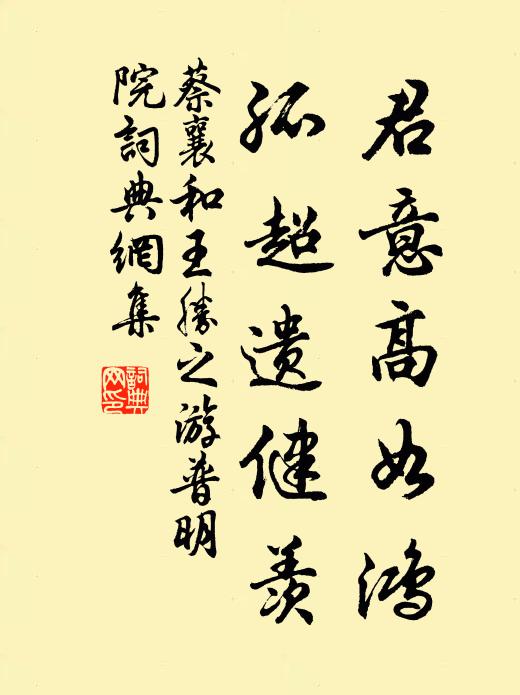 君意高如鸿
孤超遗健羡
蔡襄和王胜之游普明
院詞典網集
詞典
网印